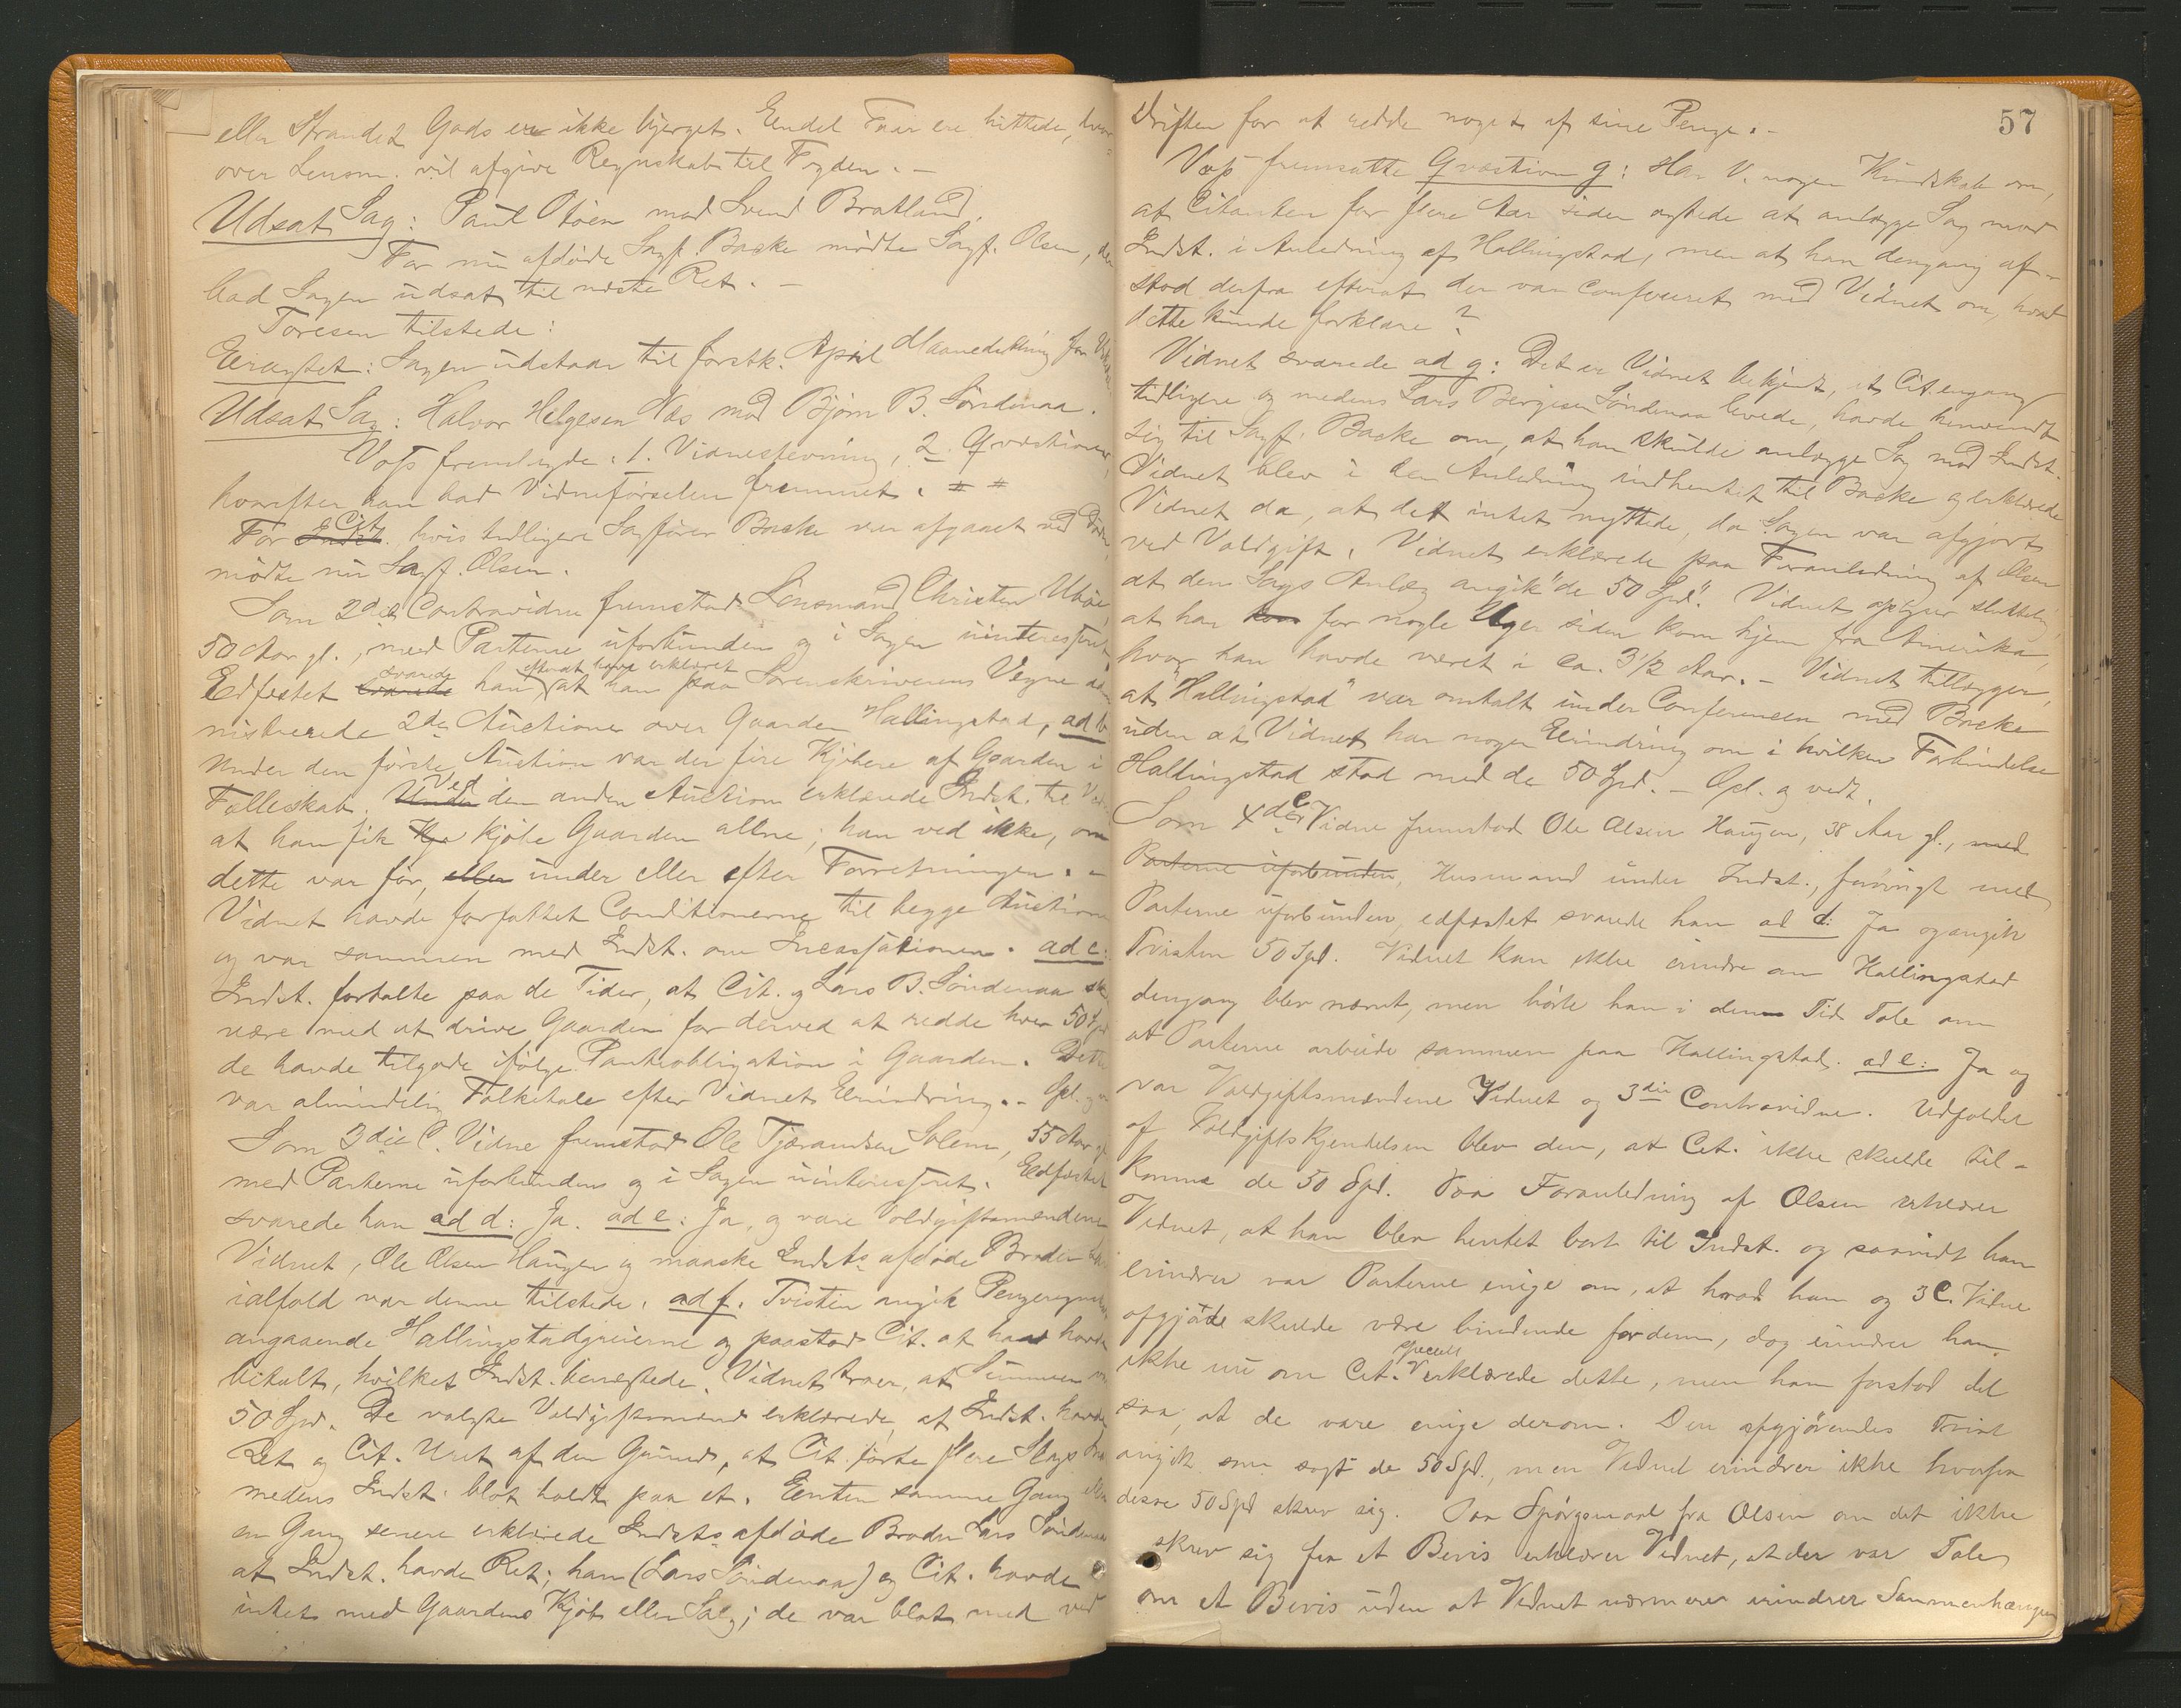 eller Strandet Gods er ikke bjerget. Eendel Faar ere hittede, hvor-
over Lensm. vil afgive Regnskab til Fogden. -
Udsat Sag: Paul Otöen mod Svend Bratland.
For nu afdöde Sagf. Backe mödte Sagf. Olsen, der
bad Sagen udsat til næste Ret. -
Toresen tilstede:
Eragtet: Sagen udstaar til förstk. April Maanedsthing for
Udsat Sag: Halvor Helgesen Næs mod Björn B. Söndenaa.
Voss fremlagde: 1. Vidnestevning, 2. Qvæstioner,
hvorefter han bad Vidneförselen fremmet. # #
For Indst. Cit. hvis tidligere Sagförer Backe var afgaaet ved Döden,
mödte nu Sagf. Olsen.
Som 2det Contravidne fremstod Lensmand Christen Uböe,
50 Aar gl., med Parterne uforbunden og i Sagen uinteresseret
Edfæstet svarede svarede han efterat have erklæret at han paa Sorenskriverens Vegne admi-
nistrerede 2de Auctioner over Gaarden Hallingstad, ad b
Under den förste Auction var der fire Kjöbere af Gaarden i
Fælleskab. Under Ved den anden Auction erklærede Indst. til
at han fik Kjø kjöbe Gaarden allene; han ved ikke, om
dette var för, eller under eller efter Forretningen. -
Vidnet havde forfattet Conditionerne til begge Auctioner
og var sammen med Indst. om Incassationen. ad c:
Indst. fortalte paa de Tider, at Cit. og Lars B. Söndenaa
være med at drive Gaarden for derved at redde hver 50 Spd
de havde tilgode ifölge Panteobligation i Gaarden. Dette
var almindelig Folketale efter Vidnets Erindring. - Opl. og
Som 3die C. Vidne fremstod Ole Tjærandsen Solem, 55 Aar gl
med Parterne uforbunden og i Sagen uinteresseret. Edfæstet
svarede han ad d: Ja. ad e: Ja, og vare Voldgiftsmændene
Vidnet, Ole Olsen Haugen og maaske Indsts afdöde Broder
ialfald var denne tilstede. ad f. Tvisten angik
angaaende Hallingstadgreierne og paastod Cit. at han havde
betalt, hvilket Indst. benegtede. Vidnet troer, at Summen var
50 Spd. De valgte Voldgiftsmænd erklærede, at Indst. havde
Ret og Cit. Uret af den Grund, at Cit. förte flere Slags
medens Indst. blot holdt paa et. Enten samme Gang eller
en Gang senere erklærede Indsts afdöde Broder Lars Söndenaa
at Indst. havde Ret; han (Lars Söndenaa) og Cit. havde
intet med Gaardens Kjöb eller Salg; de var blot med ved
57
Driften for at redde noget af sine Penge. -
Voss fremsatte Qvæstion g: Har V. nogen Kundskab om,
at Citanten for flere Aar siden agtede at anlægge Sag mod
Indst. i Anledning af Hallingstad, men at han dengang af-
stod derfra efterat der var confereret med Vidnet om, hvad
dette kunde forklare?
Vidnet svarede ad g: Det er Vidnet bekjendt, at Cit. engang
tidligere og medens Lars Börgesen Söndenaa levede, havde henvendt
sig til Sagf. Backe om, at han skulde anlægge Sag mod Indst.
Vidnet blev i den Anledning indhentet til Backe og erklærede
Vidnet da, at det intet nyttede, da Sagen var afgjort
ved Voldgift. Vidnet erklærede paa Foranledning af Olsen
at den Sags Anlæg angik "de 50 Spd". Vidnet oplyser sluttelig,
at han kom for nogle Uger siden kom hjem fra Amerika,
hvor han havde været i ca. 3 1/2 Aar. - Vidnet tillægger,
at "Hallingstad" var omtalt under Conferencen med Backe
uden at Vidnet har nogen Erindring om i hvilken Forbindelse
Hallingstad stod med de 50 Spd. - Opl. og vedt.
Som 4de C Vidne fremstod Ole Olsen Haugen, 38 Aar gl., med
Parterne uforbunden, Husmand under Indst., forövrigt med
Parterne uforbunden, edfæstet svarede han ad d: Ja og angik
Tvisten 50 Spd. Vidnet kan ikke erindre om Hallingstad
dengang blev nævnt, men hörte han i den Tid Tale om
at Parterne arbeide sammen paa Hallingstad. ad e: Ja og
var Voldgiftsmændene Vidnet og 3die Contravidne. Udfaldet
af Voldgiftskjendelsen blev den, at Cit. ikke skulde til-
komme de 50 Spd. Paa Foranledning af Olsen erklærer
Vidnet, at han blev hentet bort til Indst. og saavidt han
erindrer var Parterne enige om, at hvad han og 3 C. Vidne
opgjörde skulde være bindende for dem, dog erindrer han
ikke nu om Cit. specielt erklærede dette, men han forstod det
saa, at de vare enige derom. Den opgjörendes Tvist
angik som sagt de 50 Spd., men Vidnet erindrer ikke hvorfra
disse 50 Spd skrev sig. Paa Spörgsmaal fra Olsen om det ikke
skrev sig fra et Bevis erklærer Vidnet, at der var Tale
om et Bevis uden at Vidnet nærmere erindrer Sammenhængen